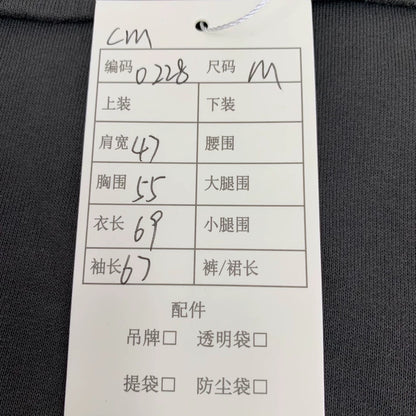 cm
编码 0228 尺码 M
上装 下装
肩宽 47 腰围
胸围 55 大腿围
衣长 69 小腿围
袖长 67 裤/裙长
配件
吊牌□ 透明袋□
提袋□ 防尘袋□